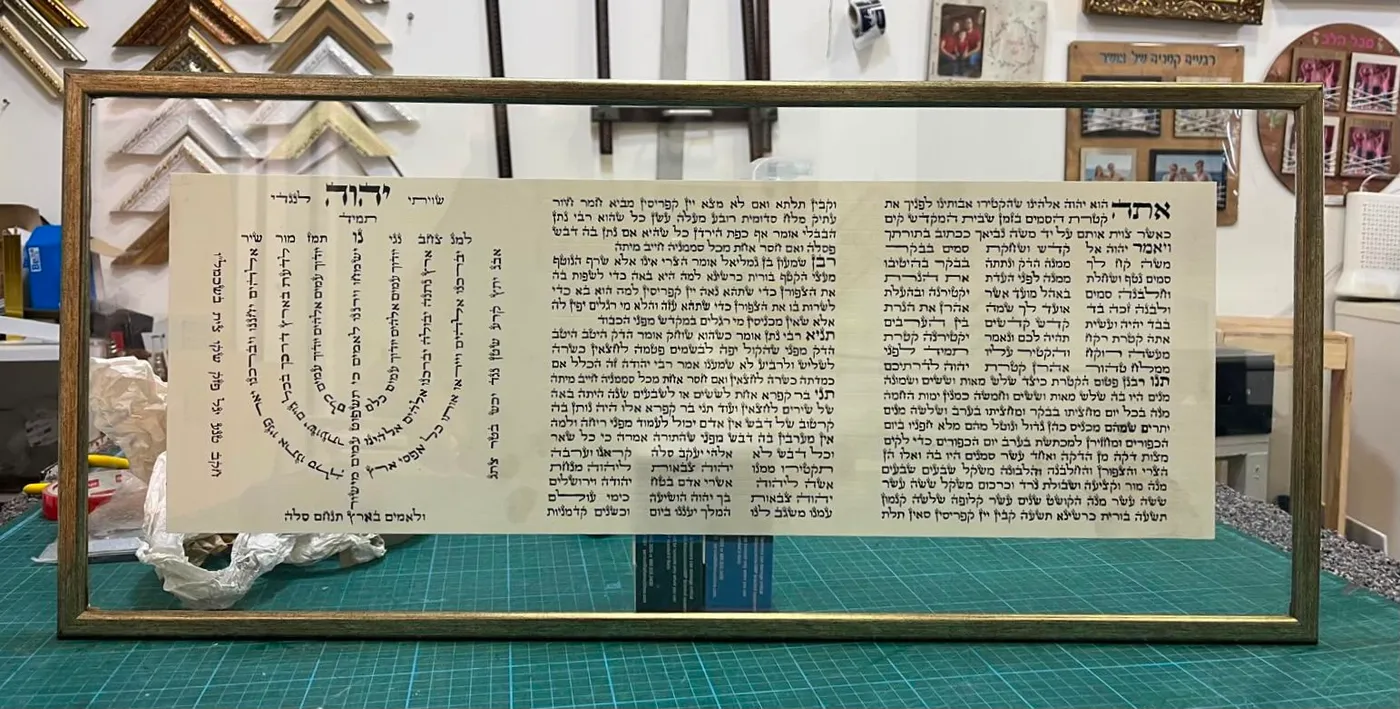 אתה הוא יהוה אלהינו שהקטירו אבותינו לפניך את
קטרת הסמים בזמן שבית המקדש קים
כאשר צוית אותם על יד משה נביאך ככתוב בתורתך
ויאמר יהוה אל קדש ושחקת סמים בבקר
משה קח לך ממנה הדק ונתתה בבקר בהיטיבו
סמים נטף ושחלת ממנה לפני העדת את הנרת
וחלבנה סמים באהל מועד אשר יקטירנה ובהעלת
ולבנה זכה בד אועד לך שמה אהרן את הנרת
בבד יהיה ועשית קדש קדשים בין הערבים
אתה קטרת רקח תהיה לכם ונאמר יקטירנה קטרת
מעשה רוקח והקטיר עליו תמיד לפני
ממלח טהור אהרן קטרת יהוה לדרתיכם
תנו רבנן פטום הקטרת כיצד שלש מאות וששים ושמונה
מנים היו בה שלש מאות וששים וחמשה כמנין ימות החמה
מנה בכל יום מחציתו בבקר ומחציתו בערב ושלשה מנים
יתרים שמהם מכניס כהן גדול ונוטל מהם מלא חפניו ביום
הכפורים ומחזירן למכתשת בערב יום הכפורים כדי לקים
מצות דקה מן הדקה ואחד עשר סמנים היו בה ואלו הן
הצרי והצפורן והחלבנה והלבונה משקל שבעים שבעים
מנה מור וקציעה ושבולת נרד וכרכום משקל ששה עשר
ששה עשר מנה הקושט שנים עשר קלופה שלשה קנמון
תשעה בורית כרשינא תשעה קבין יין קפריסין סאין תלת
וקבין תלתא ואם לא מצא יין קפריסין מביא חמר חיור
עתיק מלח סדומית רובע מעלה עשן כל שהוא רבי נתן
הבבלי אומר אף כפת הירדן כל שהיא אם נתן בה דבש
פסלה ואם חסר אחת מכל סממניה חייב מיתה
רבן שמעון בן גמליאל אומר הצרי אינו אלא שרף הנוטף
מעצי הקטף בורית כרשינא למה היא באה כדי לשפות בה
את הצפורן כדי שתהא נאה יין קפריסין למה הוא בא כדי
לשרות בו את הצפורן כדי שתהא עזה והלא מי רגלים יפין לה
אלא שאין מכניסין מי רגלים במקדש מפני הכבוד
תניא רבי נתן אומר כשהוא שוחק אומר הדק היטב היטב
הדק מפני שהקול יפה לבשמים פטמה לחצאין כשרה
לשליש ולרביע לא שמענו אמר רבי יהודה זה הכלל אם
כמדתה כשרה לחצאין ואם חסר אחת מכל סממניה חייב מיתה
תני בר קפרא אחת לששים או לשבעים שנה היתה באה
של שירים לחצאין ועוד תני בר קפרא אלו היה נותן בה
קרטוב של דבש אין אדם יכול לעמוד מפני ריחה ולמה
אין מערבין בה דבש מפני שהתורה אמרה כי כל שאר
וכל דבש לא אלהי יעקב סלה קראנו וערבה
תקטירו ממנו יהוה צבאות ליהוה מנחת
אשה ליהוה אשרי אדם בטח יהודה וירושלים
יהוה צבאות בך יהוה הושיעה כימי עולם
עמנו משגב לנו המלך יעננו ביום וכשנים קדמניות
שויתי יהוה לנגדי
תמיד
למנצח בנגינת מזמור שיר
אלהים יחננו ויברכנו יאר פניו אתנו סלה
לדעת בארץ דרכך בכל גוים ישועתך
יודוך עמים אלהים יודוך עמים כלם
ישמחו וירננו לאמים כי תשפט עמים מישור
ולאמים בארץ תנחם סלה
יודוך עמים אלהים יודוך עמים כלם
ארץ נתנה יבולה יברכנו אלהים אלהינו
יברכנו אלהים וייראו אותו כל אפסי ארץ
אבג יתץ קרע שטן נגד יכש בטר צתג
חקב טנע יגל פזק שקו צית